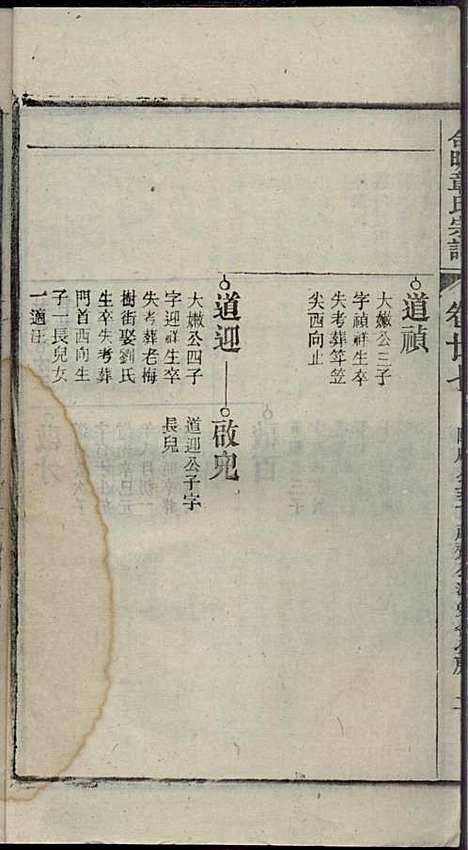 章氏宗譜
卷廿七
道禎
大嫩公三子
字禎祥生卒
失考葬笠笠
尖西向止
道迎
大嫩公四子
字迎祥生卒
失考葬老梅
樹街娶劉氏
生卒失考葬
門首西向生
子一長兒女
一適汪
啟兜
道迎公子字
長兒